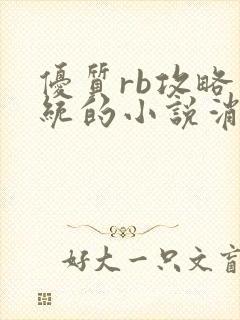 優質rb攻略
統的小說消
好大一只文盲